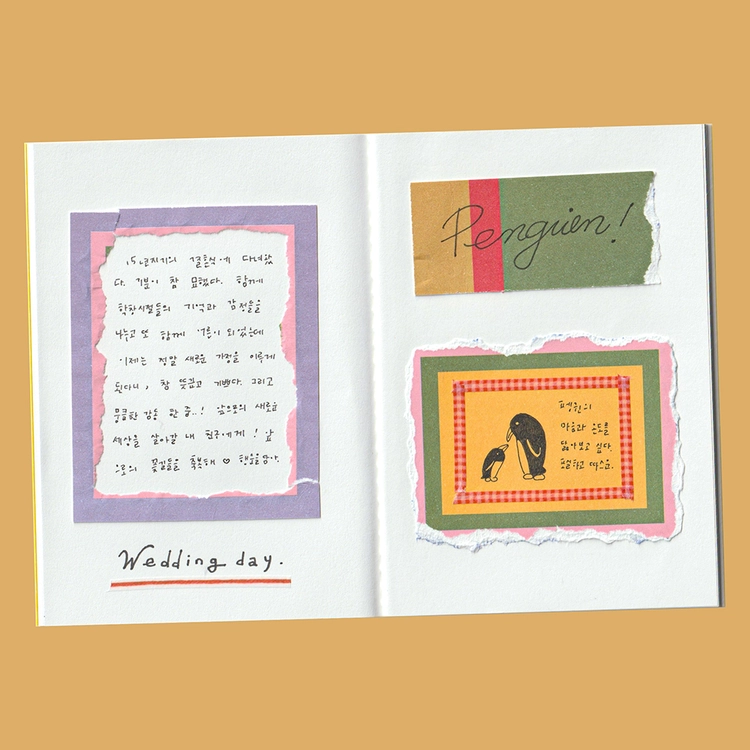 15년지기의 결혼식에 다녀왔
다. 기분이 참 묘했다. 함께
학창시절들의 기억과 감정들을
나누고 또 함께 어른이 되었는데
이제는 정말 새로운 가정을 이루게
된다니, 참 뜻깊고 기쁘다. 그리고
뭉클한 감동 한 줌..! 앞으로의 새로운
세상을 살아갈 내 친구에게! 앞
으로의 꽃길들을 축복해 ♡ 행복을 담아.
Wedding day.
Penguien!
펭귄의
마음과 온도를
닮아보고 싶다.
친절하고 따스운.